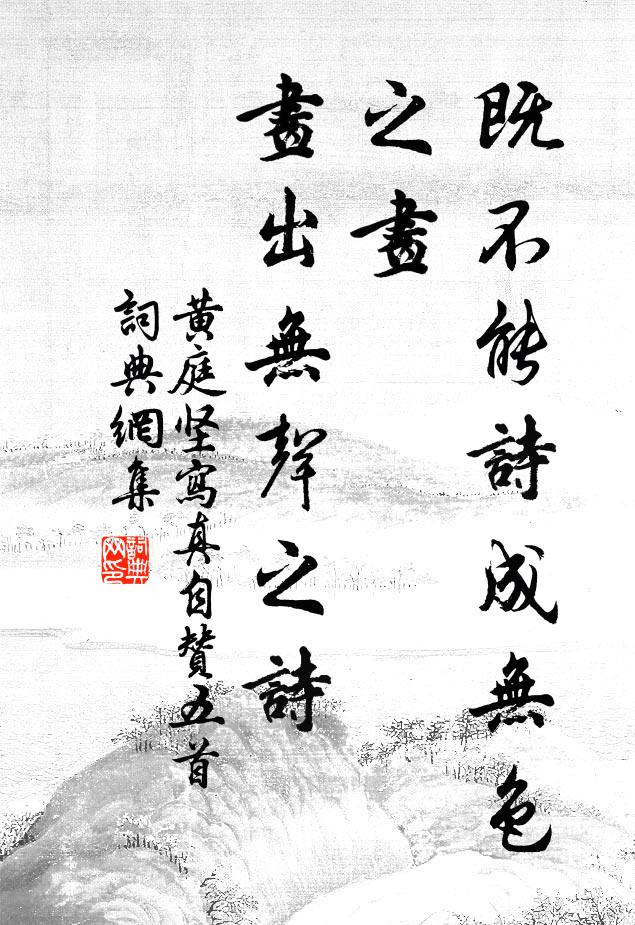 既不能詩成無色
之畫
畫出無聲之詩
黃庭坚寫真自贊五首
詞典網集
詞典網印